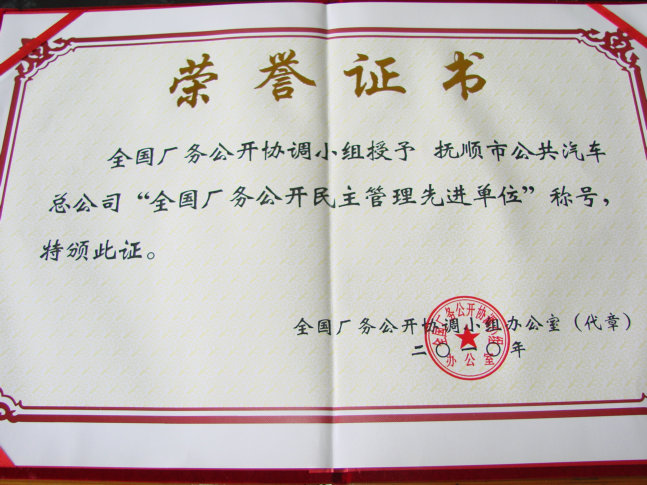 荣誉证书
全国厂务公开协调小组授予 抚顺市公共汽车
总公司“全国厂务公开民主管理先进单位”称号，
特颁此证。
全国厂务公开协调小组办公室（代章）
二〇一〇年
全国厂务公开协调小组
办公室